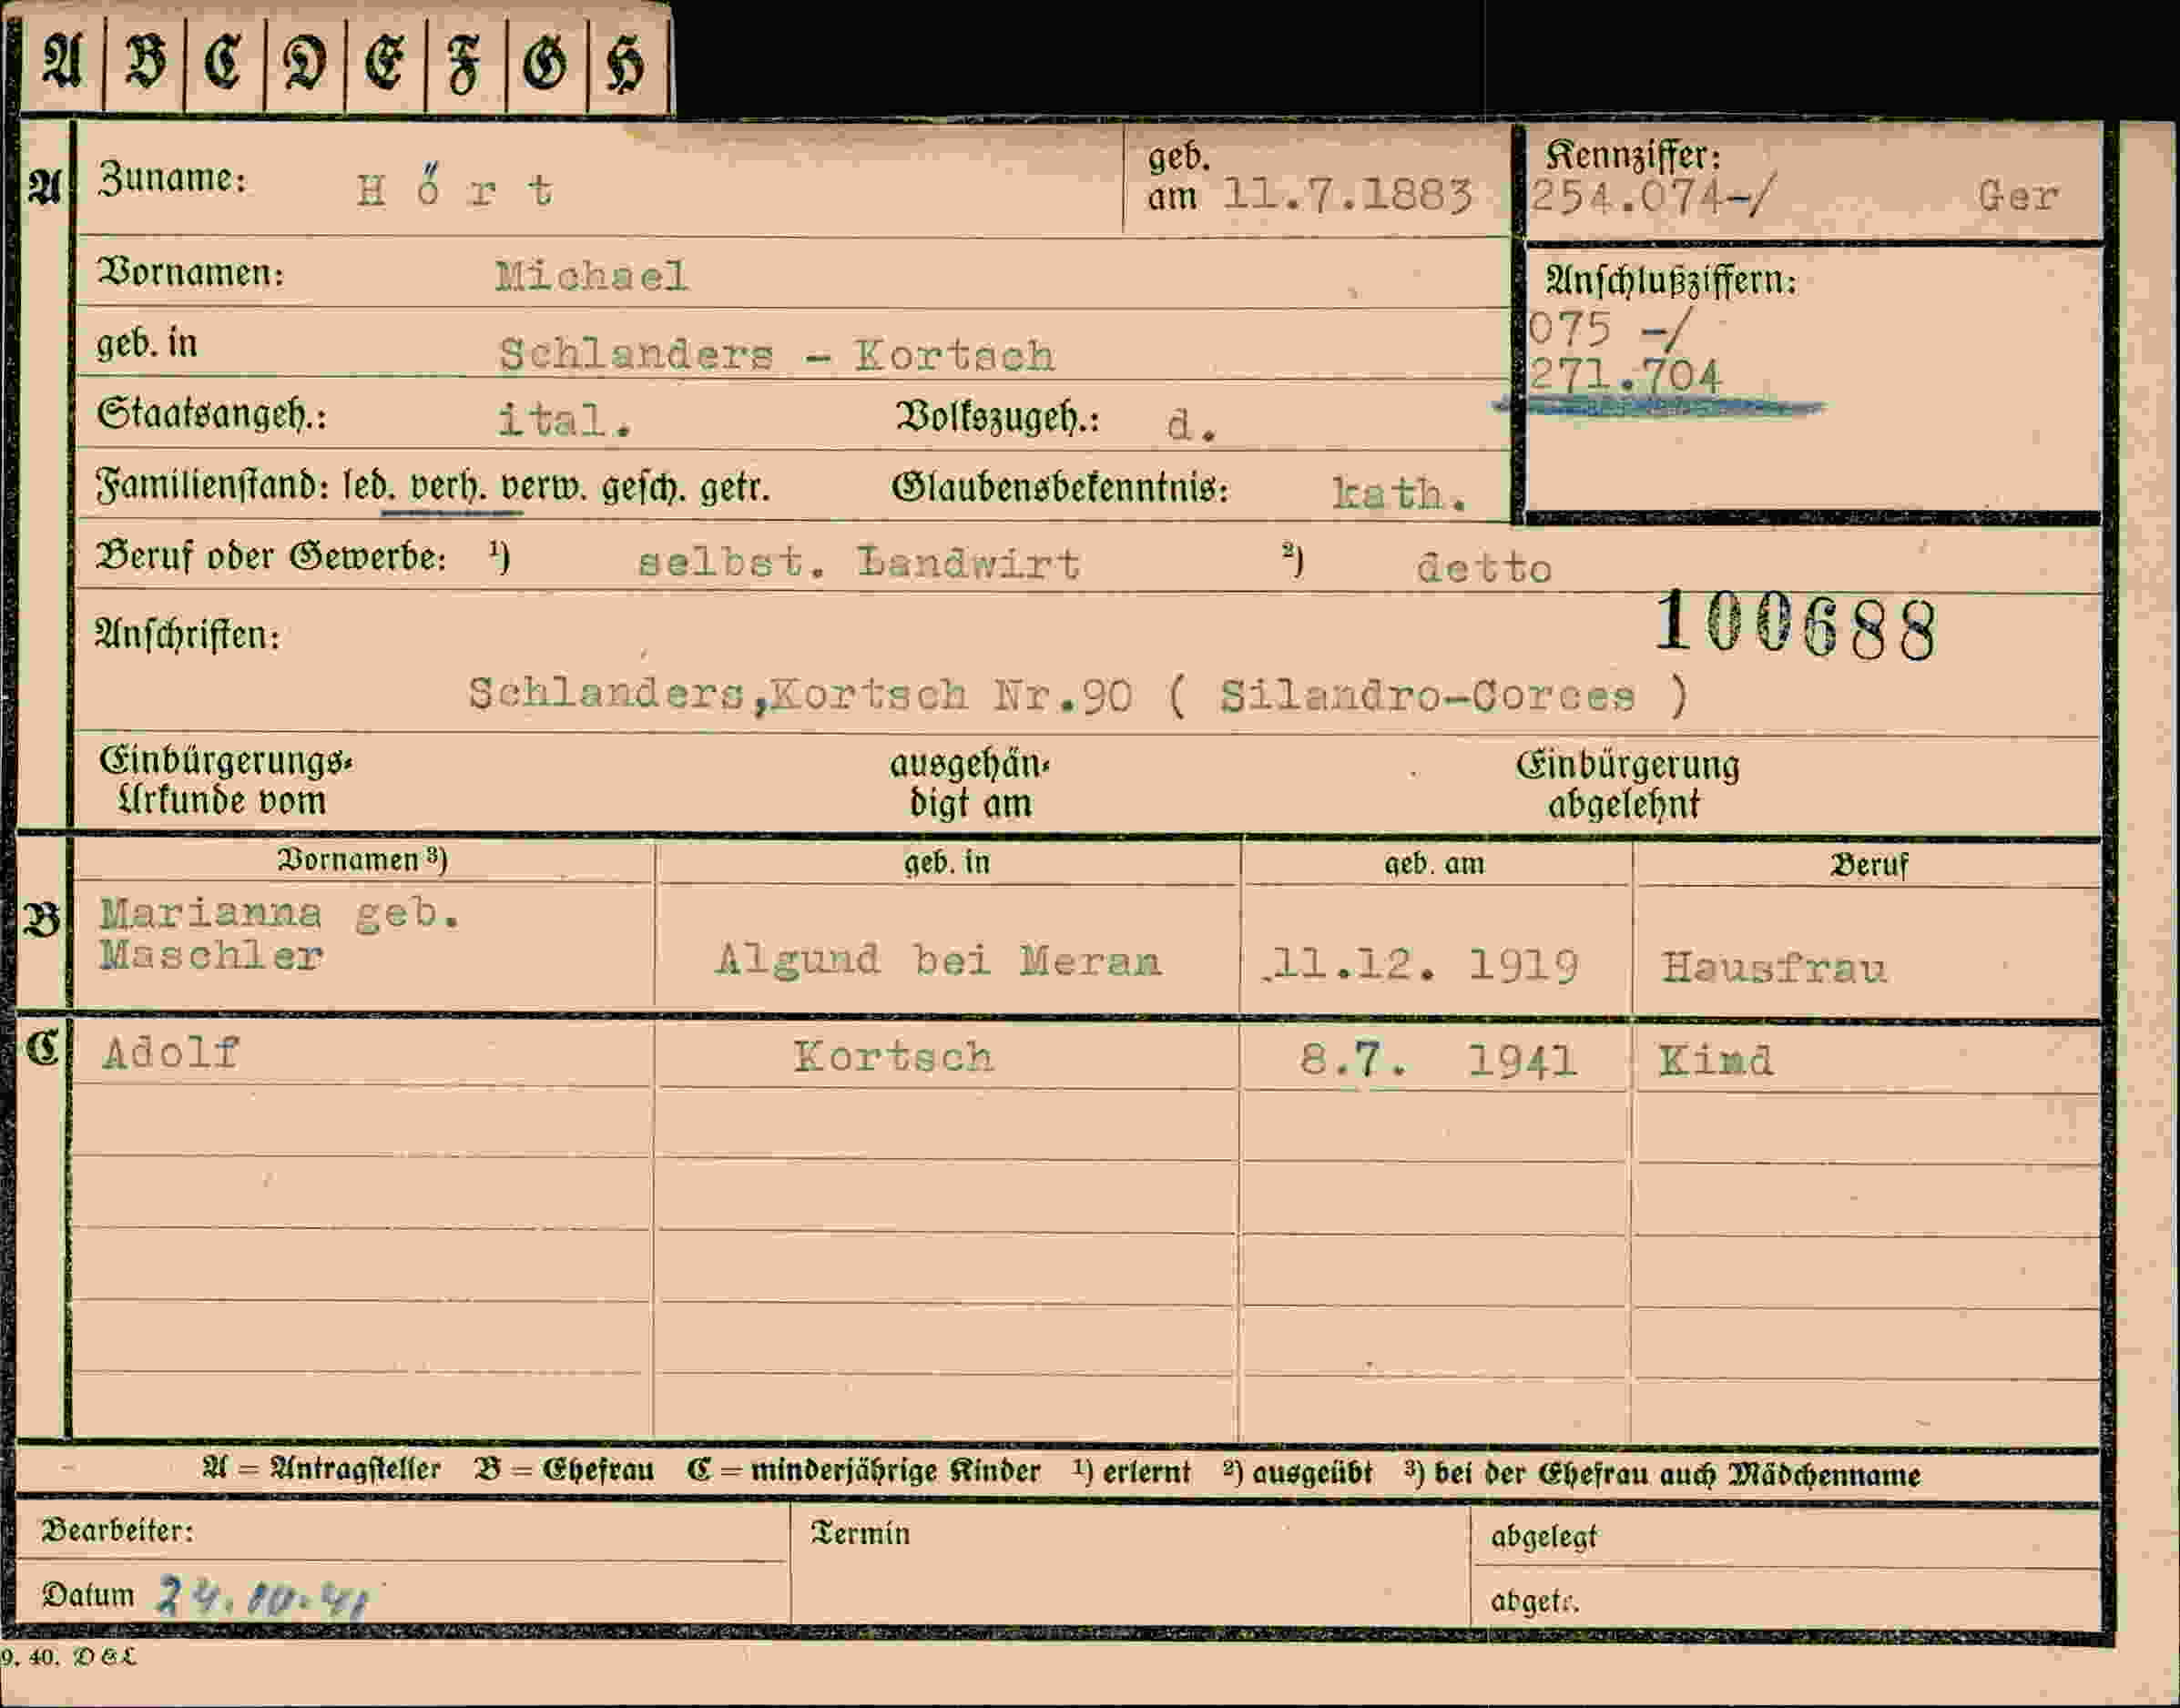 A B C D E F G H
A Zuname: Hört geb. am 11.7.1883 Kennziffer: 254.074-/ Ger
Vornamen: Michael
Anschlußziffern:
075 -/
271.704
geb. in Schlanders - Kortsch
Staatsangeh.: ital. Volkszugeh.: d.
Familienstand: led. verh. verw. gesch. getr. Glaubensbekenntnis: kath.
Beruf oder Gewerbe: 1) selbst. Landwirt 2) detto
100688
Anschriften:
Schlanders,Kortsch Nr.90 ( Silandro-Corces )
Einbürgerungs-Urkunde vom ausgehändigt am Einbürgerung abgelehnt
Vornamen 3) geb. in geb. am Beruf
B Marianna geb.
Maschler Algund bei Meran 11.12. 1919 Hausfrau
C Adolf Kortsch 8.7. 1941 Kind
A = Antragsteller B = Ehefrau C = minderjährige Kinder 1) erlernt 2) ausgeübt 3) bei der Ehefrau auch Mädchenname
Bearbeiter: Termin abgelegt
Datum 24.10.41 abgetr.
9. 40. D&L